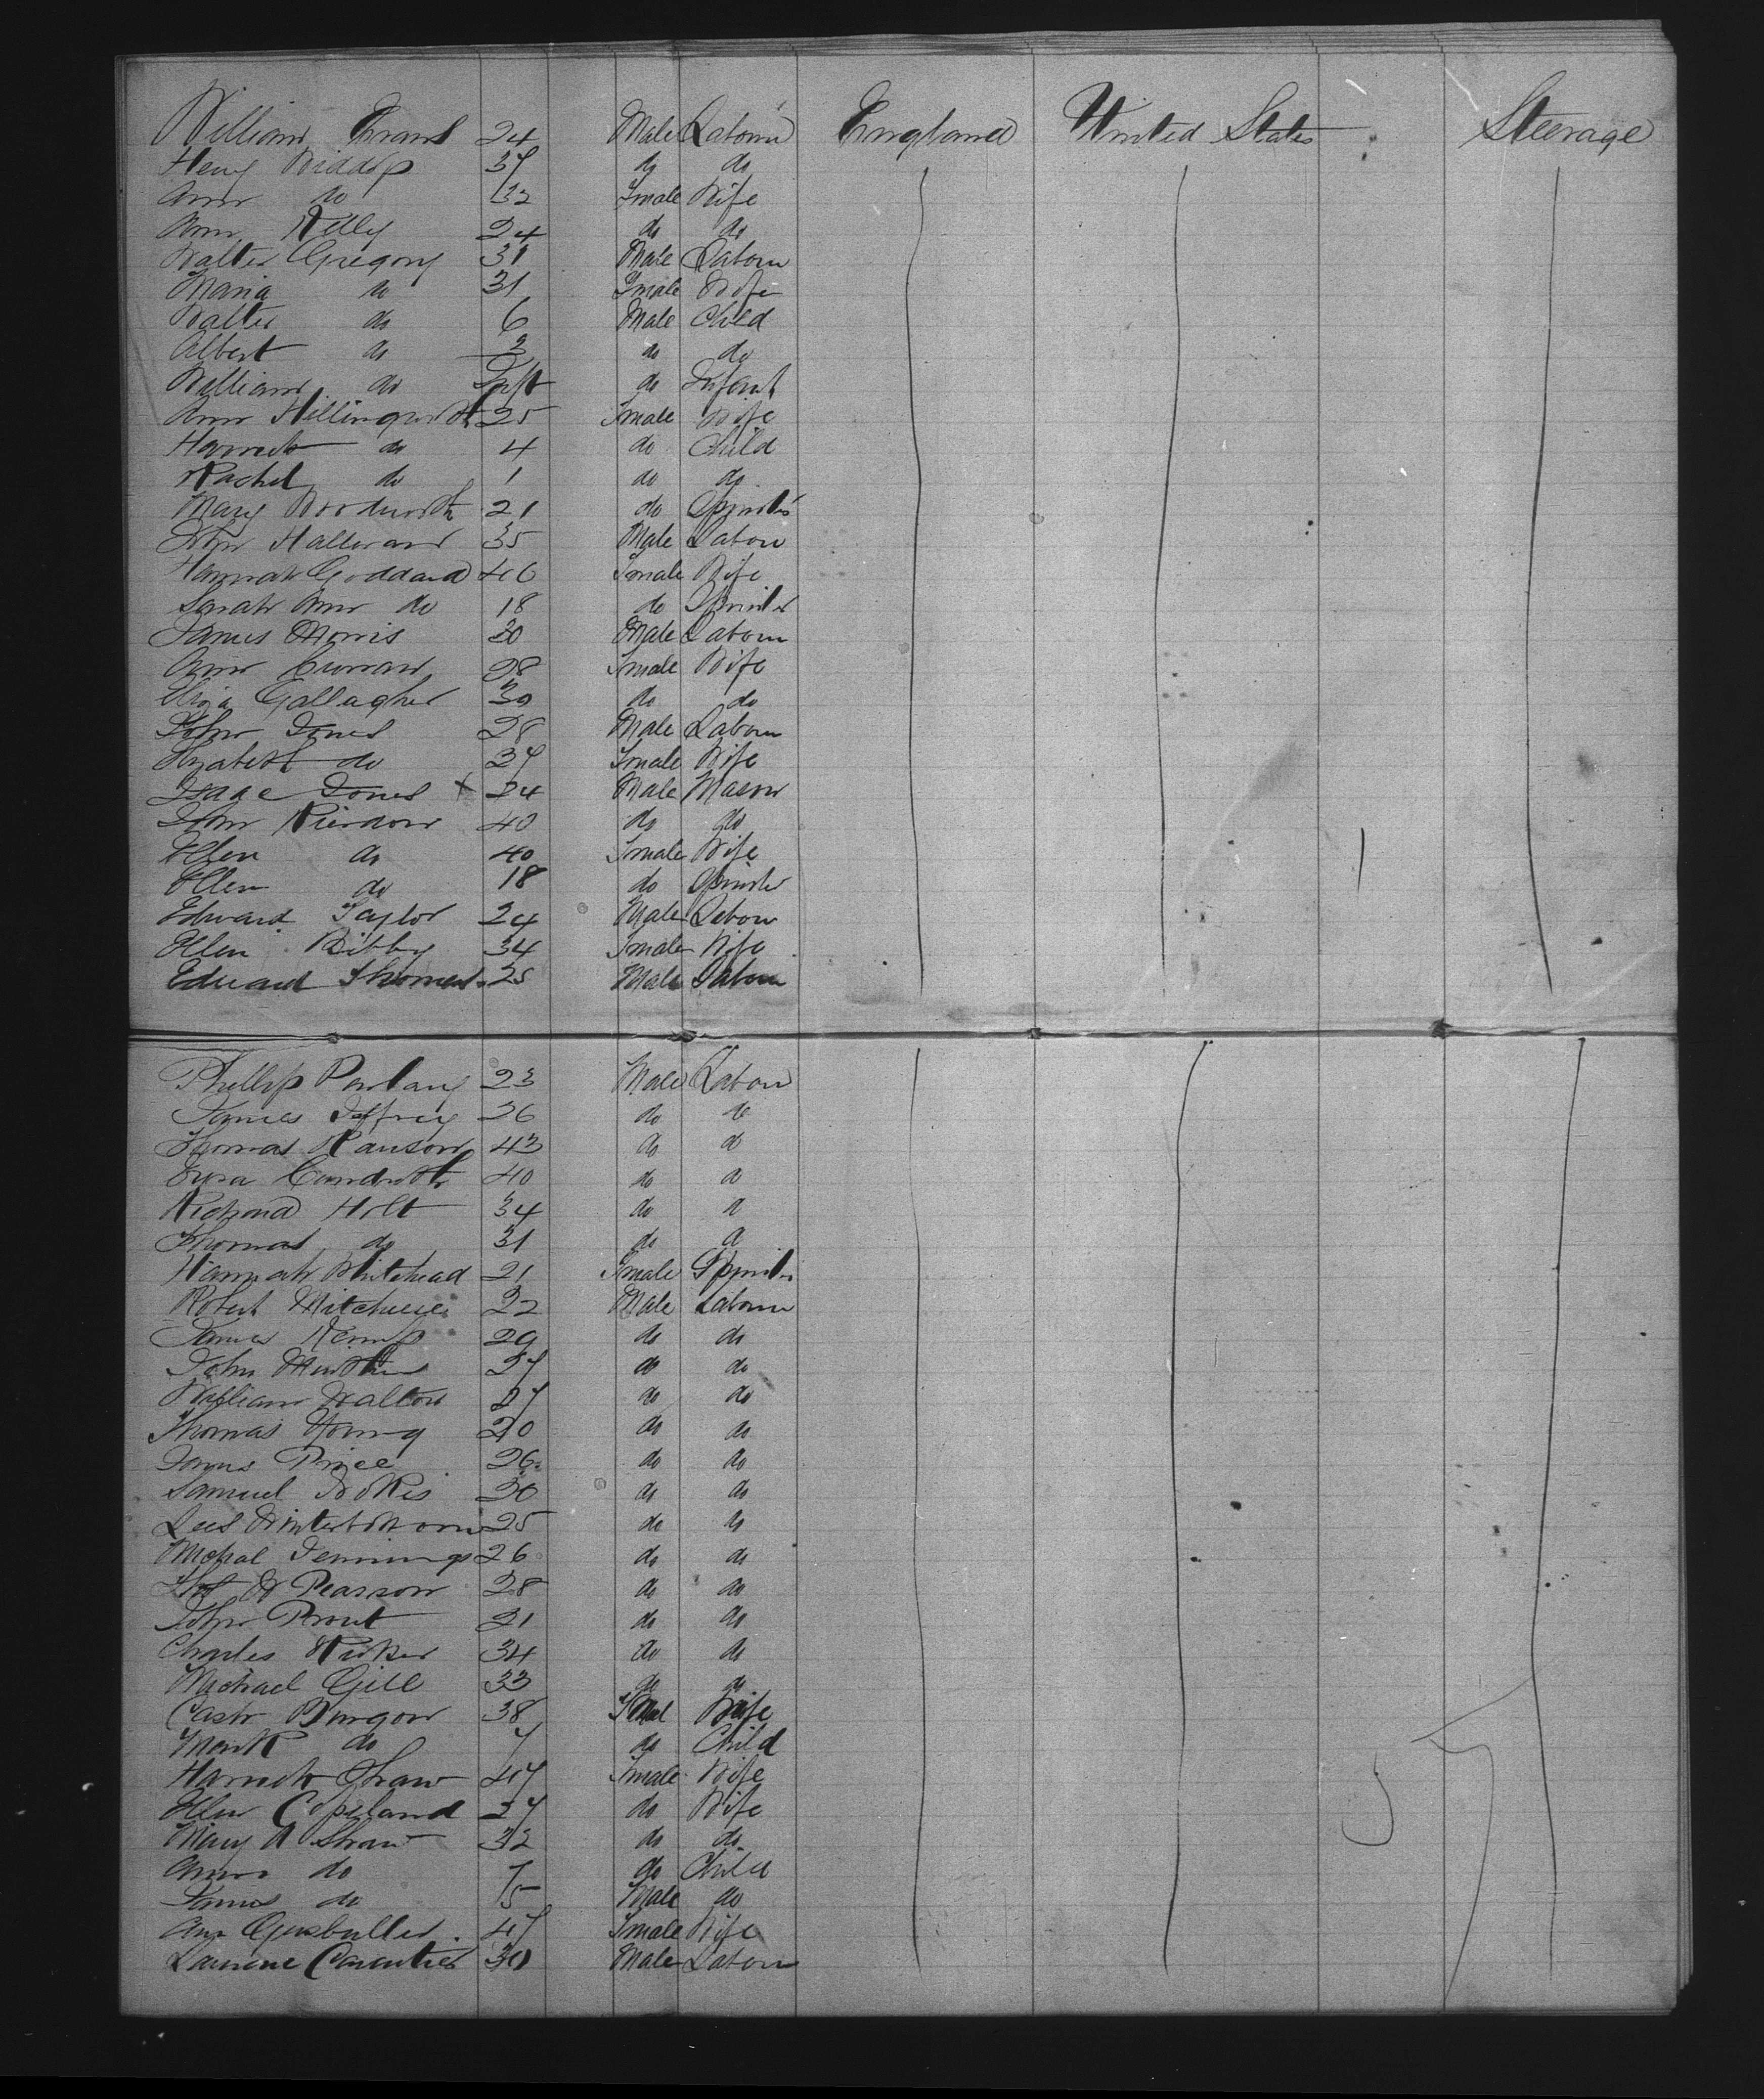 William Evans 24 Male Labour England United States Steerage
Heny Widdop 37 do do
Ann do 32 Fmale Wife
Ann Kelly 24 do do
Walter Gregory 31 Male Labour
Maria do 31 Fmale Wife
Walter do 6 Male Child
Albert do 3 do do
William do Inft do Infant
Ann Hillingworth 25 Fmale Wife
Harriet do 4 do Child
Rachel do 1 do do
Mary Woodworth 21 do Spinster
John Halloran 35 Male Labour
Hannah Goddard 46 Fmale Wife
Sarah Ann do 18 do Spinster
James Morris 30 Male Labour
Ann Curran 28 Fmale Wife
Eliza Gallagher 30 do do
John Jones 28 Male Labour
Elizabeth do 37 Fmale Wife
Isaac Jones x 24 Male Mason
John Riordon 40 do do
Ellen do 40 Fmale Wife
Ellen do 18 do Spinster
Edward Taylor 24 Male Labour
Ellen Bibby 34 Fmale Wife
Edward Thomas 25 Male Labour
Phillip 23 Male Labour
James Jeffrey 26 do do
Thomas Ranson 43 do do
40 do do
Richard Holt 34 do do
Thomas do 31 do do
Hannah Whitehead 21 Fmale Spinster
Robert Mitchell 22 Male Labour
James Kemp 29 do do
John 27 do do
William Walton 27 do do
Thomas Young 20 do do
James Price 26 do do
Samuel 30 do do
Lees Winterbottom 25 do do
Michal Jennings 26 do do
Thos W Pearson 28 do do
John Prout 21 do do
Charles 34 do do
Michael Gill 33 do do
38 Fmal Wife
do 7 do Child
Harriet Shaw 47 Fmale Wife
Ellen Copeland 27 do Wife
Mary A Shaw 32 do do
Ann do 7 do Child
James do 5 Male do
Ann 47 Fmale Wife
30 Male Labour